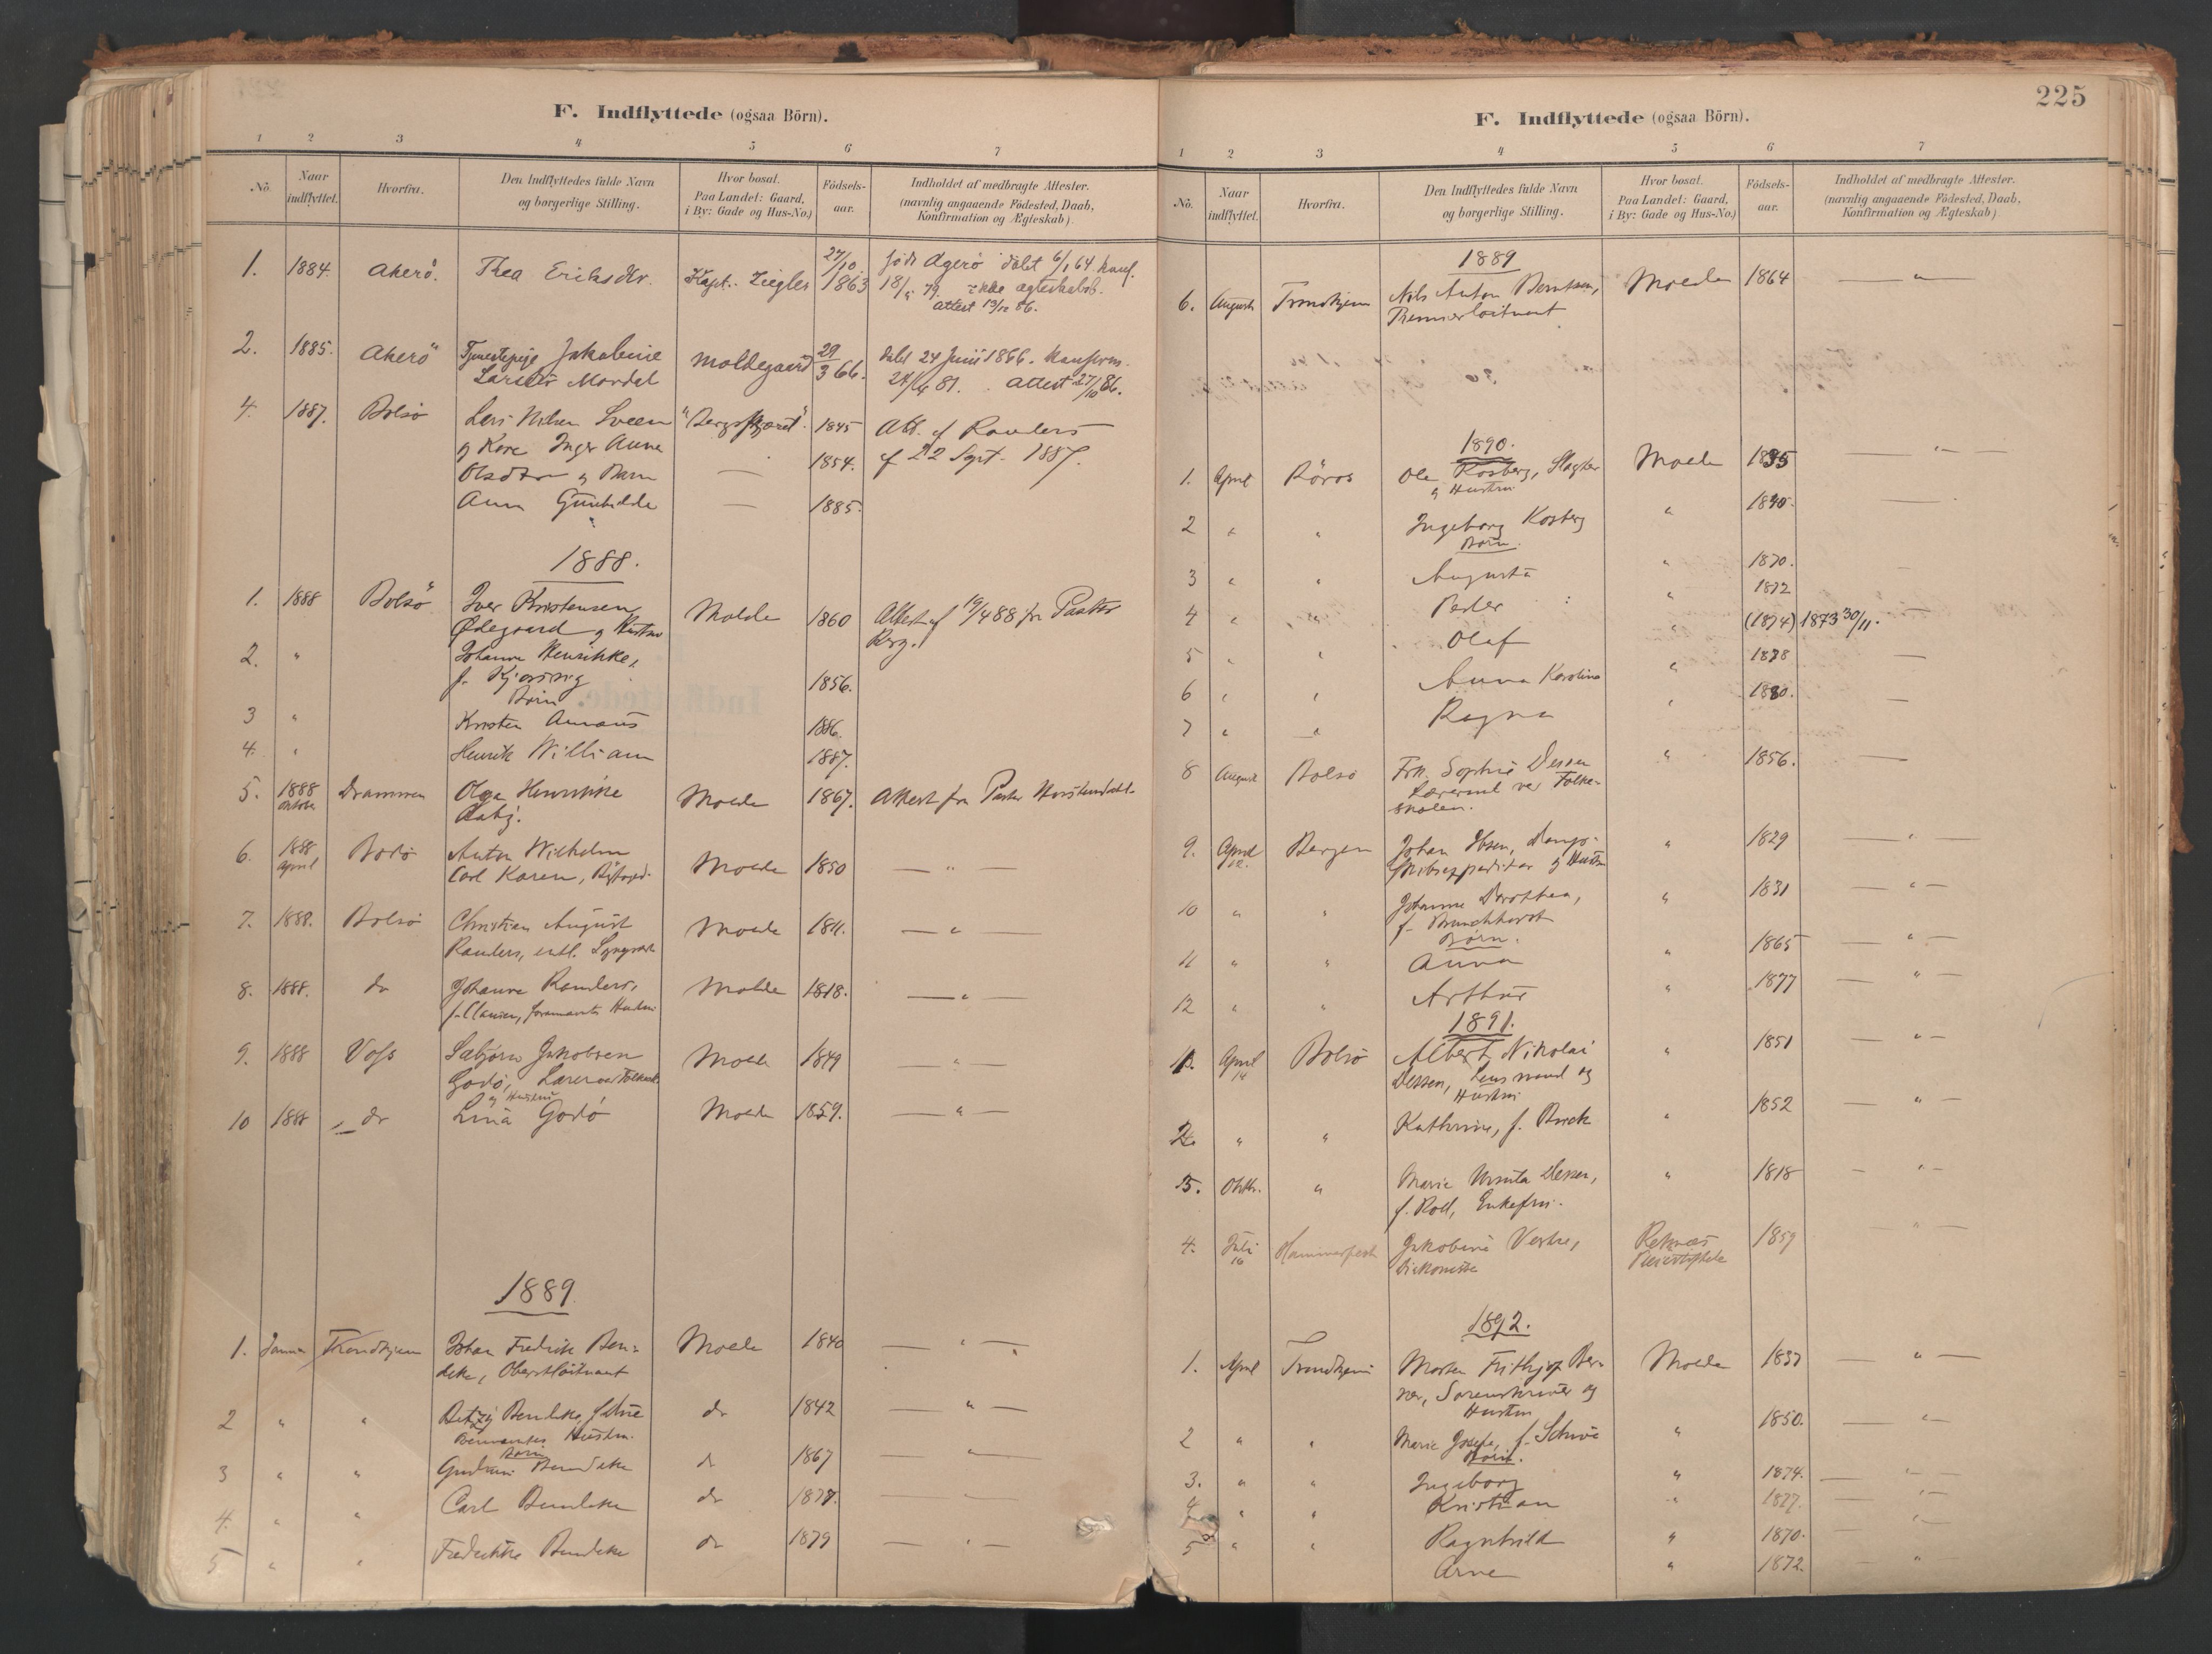 F. Indflyttede (ogsaa Börn).
1 2 3 4 5 6 7
No. Naar indflyttet. Hvorfra. Den Indflyttedes fulde Navn og borgerlige Stilling. Hvor bosat. Paa Landet: Gaard, i By: Gade og Hus-No.) Födsels-aar. Indholdet af medbragte Attester. (navnlig angaaende Födested, Daab, Konfirmation og Ægteskab).
1. 1884. Akerö. Thea Eriksdtr. Kapt. Ziegler 27/10 1863 född Agerö döbt 6/1 64. konf.
18/5 79. ikke ægteskabsb.
attest 13/12 86.
2. 1885. Akerö Tjenestepige Jakobine Moldegaard 29/3 66. döbt 24 Juni 1866. Konfirm.
Larsdtr Mordal 24/4 81. Attest 27/10 86.
4. 1887. Bolsö Lars Nilsen Sveen "Bergstjæret". 1845 Att. af Randers
og Kone Inger Anne 1854. af 22 Sept. 1887.
Olsdtr og Barn —
Ann Gunhilde — 1885.
1888.
1. 1888 Bolsö Iver Kristensen Molde 1860 Attest af 19/4 88 fra Pastor
Ødegaard og Hustru Berg.
2. " Johanne Henrikke,
f. 1856.
Børn
3 " Kristen 1886.
4. " Henrik William 1887.
5. 1888 Oktober Drammen Olga Henrikke Molde 1867. Attest fra Pastor
6. 1888 April Bolsö Anton Wilhelm Molde 1850 — " —
Carl Koren,
7. 1888. Bolsö Christian August Molde 1811. — " —
Randers, entl.
8. 1888. do Johanne Randers, Molde 1818. — " —
f. Clausen, forannævntes Hustru
9. 1888 Voss Sæbjörn Jakobsen Molde 1849 "
Godö, Lærer ved Folkesk.
og Hustru
10 1888 do Lina Godö Molde 1859. — " —
1889.
1. Januar Trondhjem Johan Fredrik Ben- Molde 1840 — " —
deke, Oberstlöitnant
2 " " Betzy Bendeke, f. do 1842 — " —
Benævntes Hustru.
Börn
3 " " Gudrun Bendeke do 1867 "
4. " " Carl Bendeke do 1878.
5 " " Fredrikke Bendeke do 1879 — " —
225
F. Indflyttede (ogsaa Börn).
1 2 3 4 5 6 7
No. Naar indflyttet. Hvorfra. Den Indflyttedes fulde Navn og borgerlige Stilling. Hvor bosat. Paa Landet: Gaard, i By: Gade og Hus-No.) Födsels-aar. Indholdet af medbragte Attester. (navnlig angaaende Födested, Daab, Konfirmation og Ægteskab)
1889
6. August Trondhjem Nils Anton Berntsen, Molde 1864 — " —
Premierlöitnant
1890.
1. April Röros Ole Kosberg, Slagter Molde 1835 — " —
og Hustru
2 " " Ingeborg Kosberg " 1840.
Börn.
3 " " Augusta " 1870.
4 " " Peder " 1872
5 " " Olaf " (1874) 1873 30/11.
6 " " Anna Karoline " 1878
7 " " Ragna " 1880.
8 August Bolsö Frk. Sophie Dessen " 1856.
Lærerinde ved Folke-
skolen.
9. April 12. Bergen Johan Ibsen, Damp- " 1829 — " —
skibsexpeditör og Hustru
10 " " Johanne Dorothea, " 1831 — " —
f. Brunchhorst
Börn.
11 " " Anna " 1865 — " —
12 " " Arthur " 1877 " —
1891.
1. April 14 Bolsö Albert Nikolai " 1851 — " —
Dessen, Lensmand og
Hustru
2. " " Kathrine, f. Buck " 1852 — " —
Oktbr. " Marie Ursula Dessen, " 1818 — " —
f. Roll, Enkefru.
4. Juli 16 Hammerfest Jakobine Vestre, Reknæs 1859 — " —
Diakonisse Pleiestiftelse
1892.
1. April Trondhjem Morten Frithjof Ber- Molde 1837 — " —
ner, Sorenskriver og
Hustru
2 " " Marie Josefa, f. " 1850. — " —
Börn.
3. " " Ingeborg " 1874. — " —
4 " " Kristian " 1877. "
5 " " Ragnhild " 1870. "
Arne " 1872. — " —